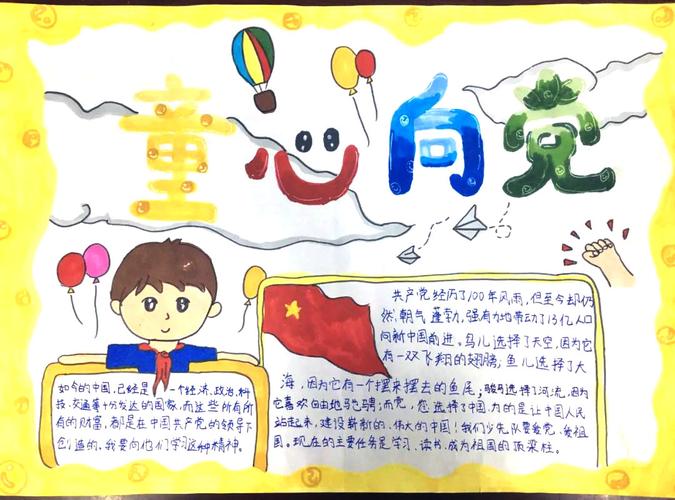 童心向党
共产党经历了100年风雨,但至今却仍
然朝气蓬勃,强有力地带动了13亿人口
向新中国前进。鸟儿选择了天空,因为它
有一双飞翔的翅膀;鱼儿选择了大
海,因为它有一个摆来摆去的鱼尾;骏马选择了河流,因为
它喜欢自由地驰骋;而党,您选择了中国,为的是让中国人民
站起来,建设崭新的、伟大的中国!我们少先队要爱党、爱祖
国。现在的主要任务是学习、读书,成为祖国的顶梁柱。
如今的中国,已经是一个经济、政治、科
技、交通等十分发达的国家,而这些所有所
有的财富,都是在中国共产党的领导下
创造的。我要向他们学习这种精神。